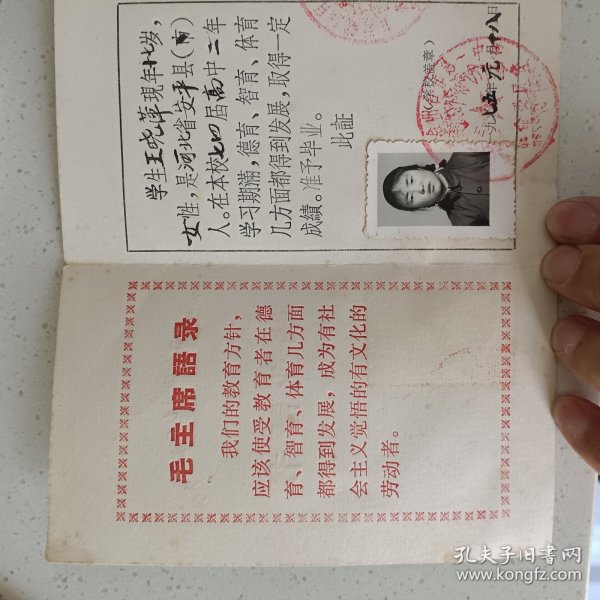 毛主席語录
我们的教育方针，
应该使受教育者在德
育、智育、体育几方面
都得到发展，成为有社
会主义觉悟的有文化的
劳动者。
学生王晓萍現年十七岁，
女性，是河北省安平县(市)
人。在本校七四届高中二年
学习期滿，德育、智育、体育
几方面都得到发展，取得一定
成績。准予毕业。
此証
(学校盖章)
一九七五年元月十八日
孔夫子旧书网
www.kongfz.com